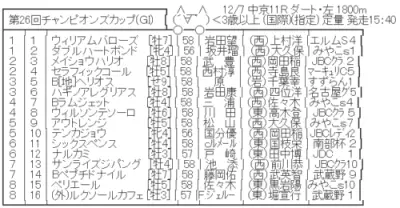 第26回チャンピオンズカップ(GI) 12/7 中京11R ダート・左 1800m
<3歳以上 (国際)(指定) 定量 発走15:40
1 1 ウィリアムバローズ [牡7] 58 岩田望 (西)上村洋 エルムS4
1 2 ダブルハートボンド [牝4] 56 坂井瑠 (西)大久保 みやこs1
2 3 メイショウハリオ [牡8] 58 武 豊 (西)岡田稲 JBCクラ2
2 4 セラフィックコール [牡5] 58 西村淳 (西)寺島良 マーキュリC5
3 5 ヘリオス 58 (西) すずらん1
3 6 ハギノアレグリアス [牡8] 58 岩田康 (西)四位洋 名古屋グ5
4 7 ラムジェット [牡4] 58 三 浦 (西)佐々木 みやこs4
4 8 ウィルソンテソーロ [牡6] 58 川 田 (東)高木登 JBCクラ5
5 9 アウトレンジ [牡5] 58 松 山 (西)大久保 みやこs7
5 10 テンカジョウ [牝4] 56 国分優 (西)岡田稲 JBCレディ2
6 11 シックスペンス [牡4] 58 ルメール (東)国枝栄 南部杯2
6 12 ナルカミ [牡3] 57 戸 崎 (東)田中博 JDC 1
7 13 サンライズジパング [牡4] 58 池 添 (西)前川恭 JBCクラ10
7 14 ペプチドナイル [牡7] 58 藤岡佑 (西)武英智 武蔵野9
8 15 ペリエール [牡5] 58 佐々木 (東)黒岩陽 みやこs10
8 16 (外)ルクソールカフェ [牡3] 57 (東)堀宣行 武蔵野1